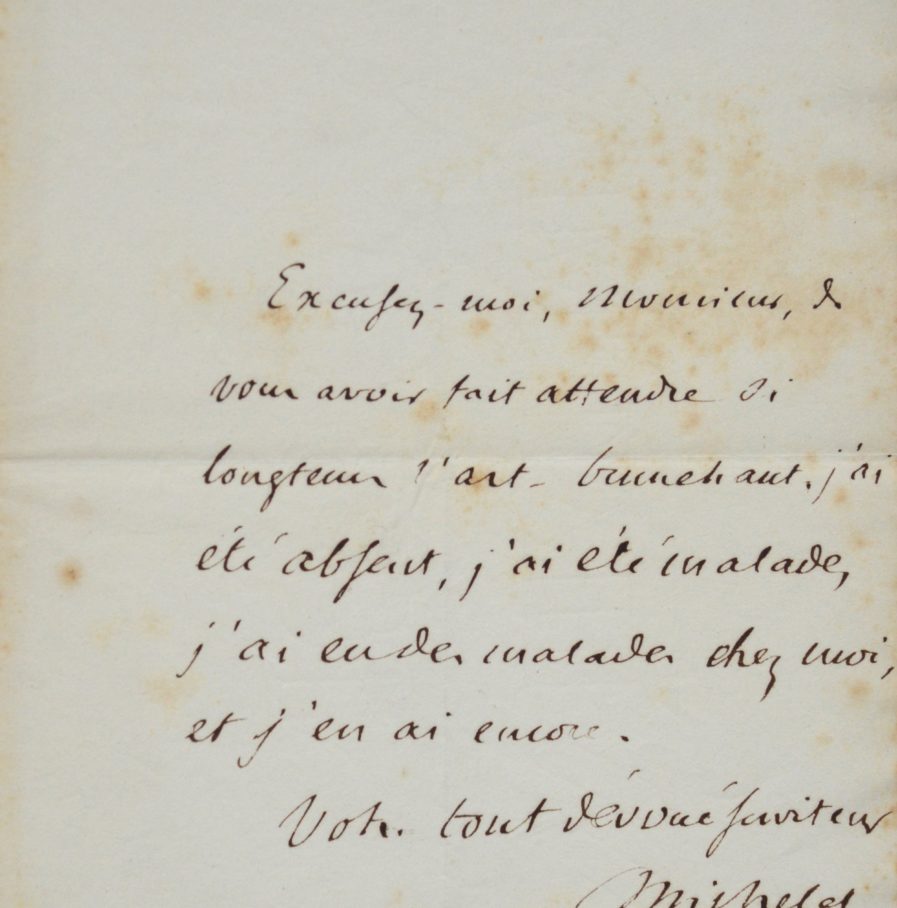 Excusez-moi, Monsieur, de
vous avoir fait attendre si
longtems l'art. brunehaut. j'ai
été absent, j'ai été malade,
j'ai eu des malades chez moi,
et j'en ai encore.
Votre tout dévoué serviteur
Michelet